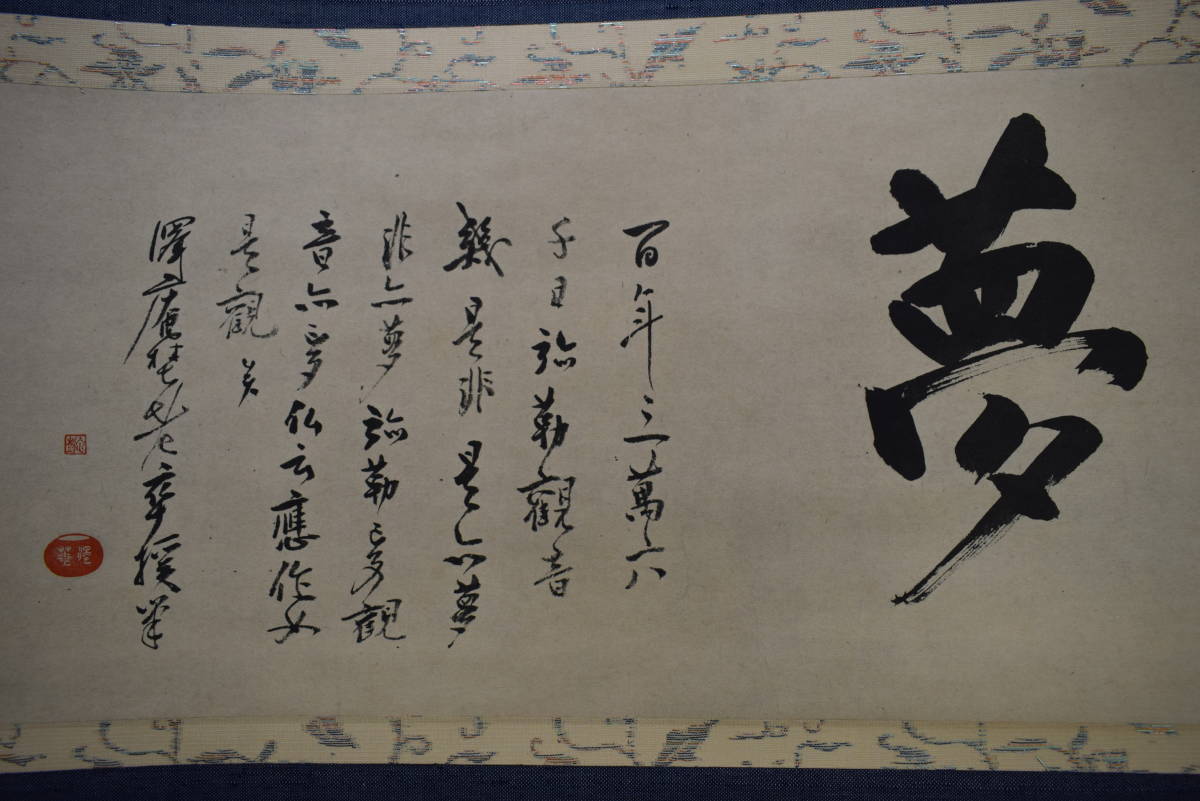 夢
百年三萬六
千日弥勒觀音
幾是非是亦夢
非亦夢弥勒夢觀
音亦夢仏云應作如
是觀矣
澤庵野老卒援筆